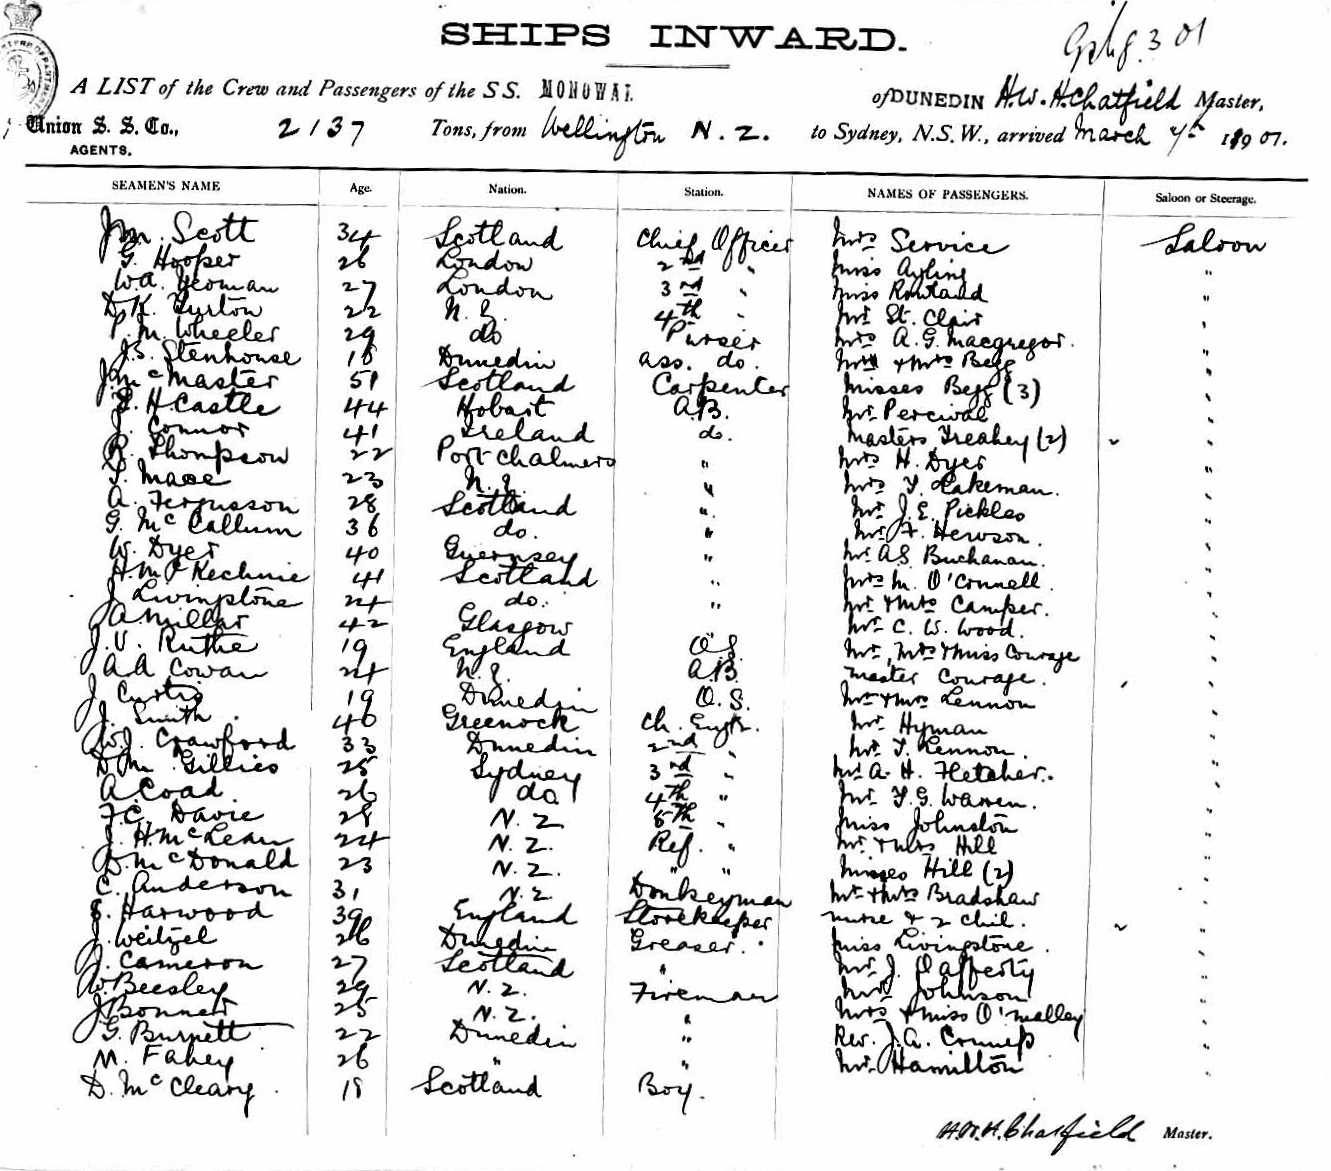 SHIPS INWARD.
3 01
A LIST of the Crew and Passengers of the SS. MONOWAI. of DUNEDIN H.W.H. Chatfield Master,
Union S. S. Co., 2137 Tons, from Wellington N. Z. to Sydney, N.S.W., arrived March 7th 1901.
AGENTS.
SEAMEN'S NAME Age. Nation. Station. NAMES OF PASSENGERS. Saloon or Steerage.
J.M. Scott 34 Scotland Chief Officer Mrs Service Saloon
G. Hooper 26 London 2nd " Miss Ayling "
W.A. Yeoman 27 London 3rd " Miss Rowland "
D.K. Turton 22 N.Z. 4th " Mr St. Clair "
P.M. Wheeler 29 do Purser Mrs A.G. Macgregor. "
J.S. Stenhouse 18 Dunedin ass. do. Mr & Mrs Begg "
J. McMaster 51 Scotland Carpenter Misses Begg (3) "
H. Castle 44 Hobart A.B. Mr Percival "
J. Connor 41 Ireland do. Masters Treahey (2) "
R. Thompson 22 Port Chalmers " Mrs H. Dyer "
Mace 23 N.Z. " Mrs Y. Lakeman. "
A. Fergusson 28 Scotland " Mr J.E. Pickles "
G. McCallum 36 do. " Mr F. Hewson. "
W. Dyer 40 Guernsey " Mr A.S. Buchanan. "
H. McKechnie 41 Scotland " Mrs M. O'Connell. "
J. Livingstone 24 do. " Mr & Mrs Camper. "
A Millar 42 Glasgow Mr C. W. Wood. "
J.V. Ruthe 19 England O.S. Mr, Mrs & Miss Courage "
A.A. Cowan 24 N.Z. A.B. Master Courage. "
J. Curtis 19 Dunedin O.S. Mr & Mrs Lennon "
J. Smith 46 Greenock Ch. Engr. Mr Hyman "
W.J. Crawford 33 Dunedin 2nd " Mr T. Lennon "
D.M. Gillies 25 Sydney 3rd " Mr A. H. Fletcher. "
A Coad 26 do 4th " Mr T.G. Warren. "
F.C. Davie 28 N.Z. 5th " Miss Johnston "
J.H. McLean 24 N.Z. Ref. " Mr & Mrs Hill "
D. McDonald 23 N.Z. " " Misses Hill (2) "
C. Anderson 31 N.Z. Donkeyman Mr & Mrs Bradshaw "
E. Harwood 39 England Storekeeper nurse & 2 chil. "
J. Weitzel 26 Dunedin Greaser. Miss Livingstone. "
J. Cameron 27 Scotland " Mr J. Rafferty "
W. Beesley 29 N.Z. Fireman Mr Johnson "
J Bonner 25 N.Z. " Mrs & Miss O'Malley "
G. Burnett 22 Dunedin " Rev. J.A. "
M. Fahey 26 " " Mr Hamilton "
D. McCleary 18 Scotland Boy.
H.W.H. Chatfield Master.